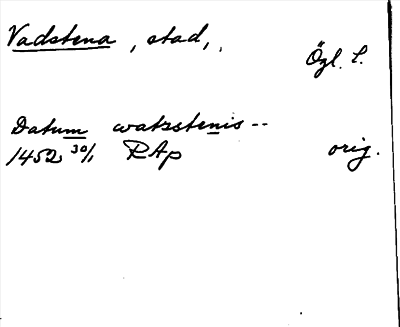 Vadstena, stad,,
Ögl. l.
Datum watzstenis --
1452 30/1 RAp orig.